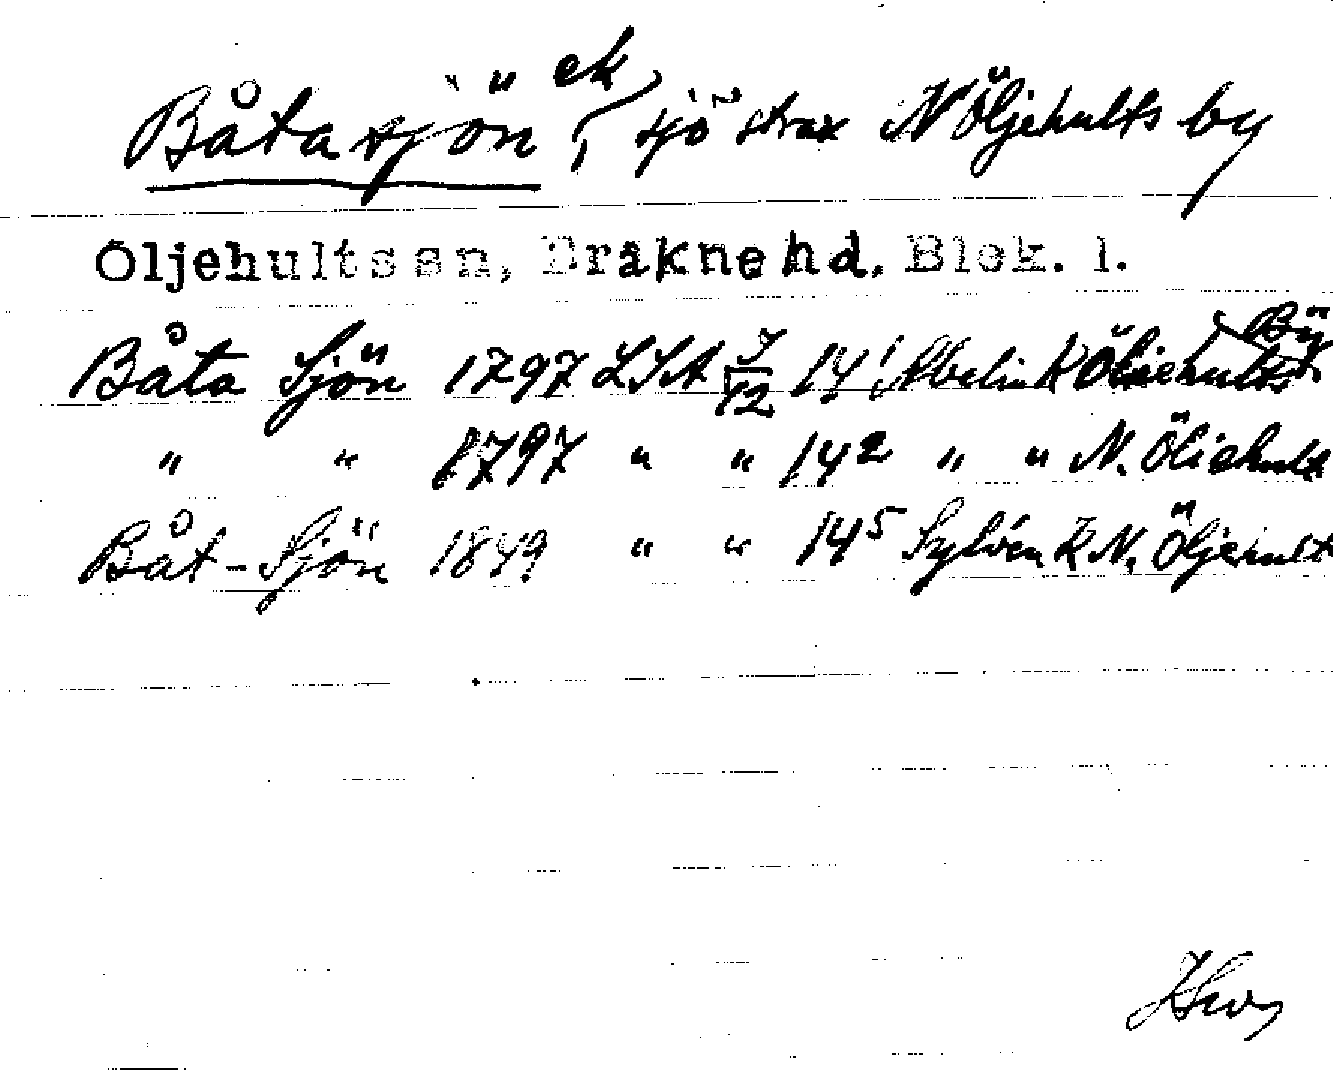 Båtasjön ek, sjö strax N Öljehults by
Öljehults sn, Bräkne hd, Blek. l.
Båta Sjön 1797 LSA 7/12 14¹ Abelin K Öliehults By
" " 1797 " " 14² " " N. Öliehult
Båt-Sjön 1849 " " 14⁵ Sylvén K N. Öljehult